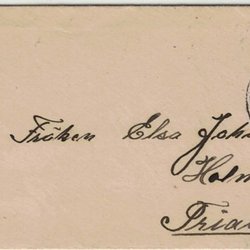 Fröken Elsa Joh
Holm
Fria